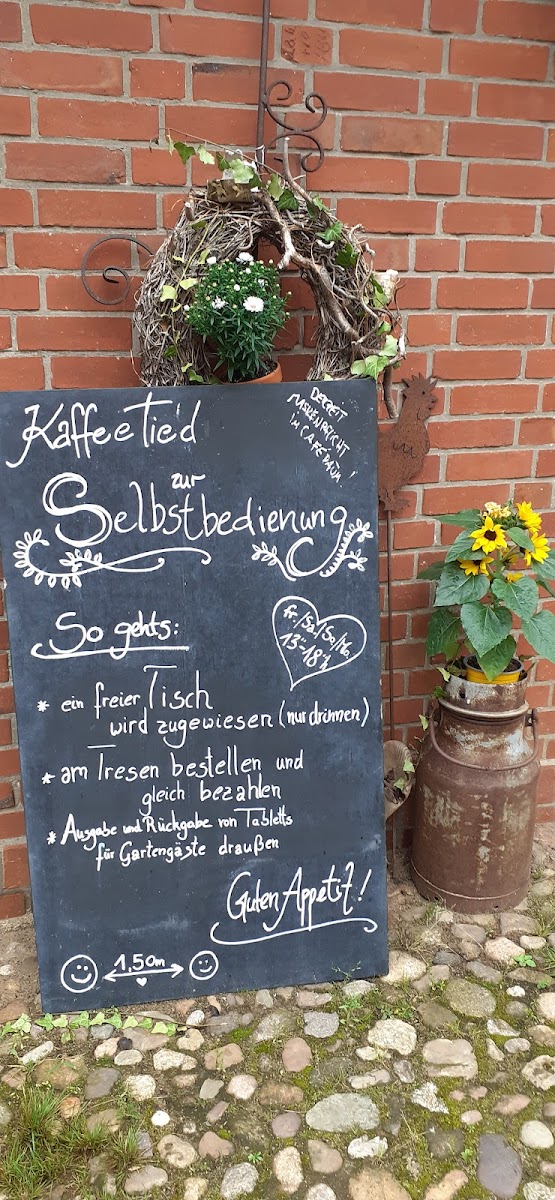 KaffeeTied
DERZEIT
MASKENPFLICHT
IM CAFÉRAUM!
zur
Selbstbedienung
So gehts:
Fr./Sa./So./Mo.
13⁰⁰-18⁰⁰h
* ein freier Tisch
wird zugewiesen (nur drinnen)
* am Tresen bestellen und
gleich bezahlen
* Ausgabe und Rückgabe von Tabletts
für Gartengäste draußen
Guten Appetit!
1,50m